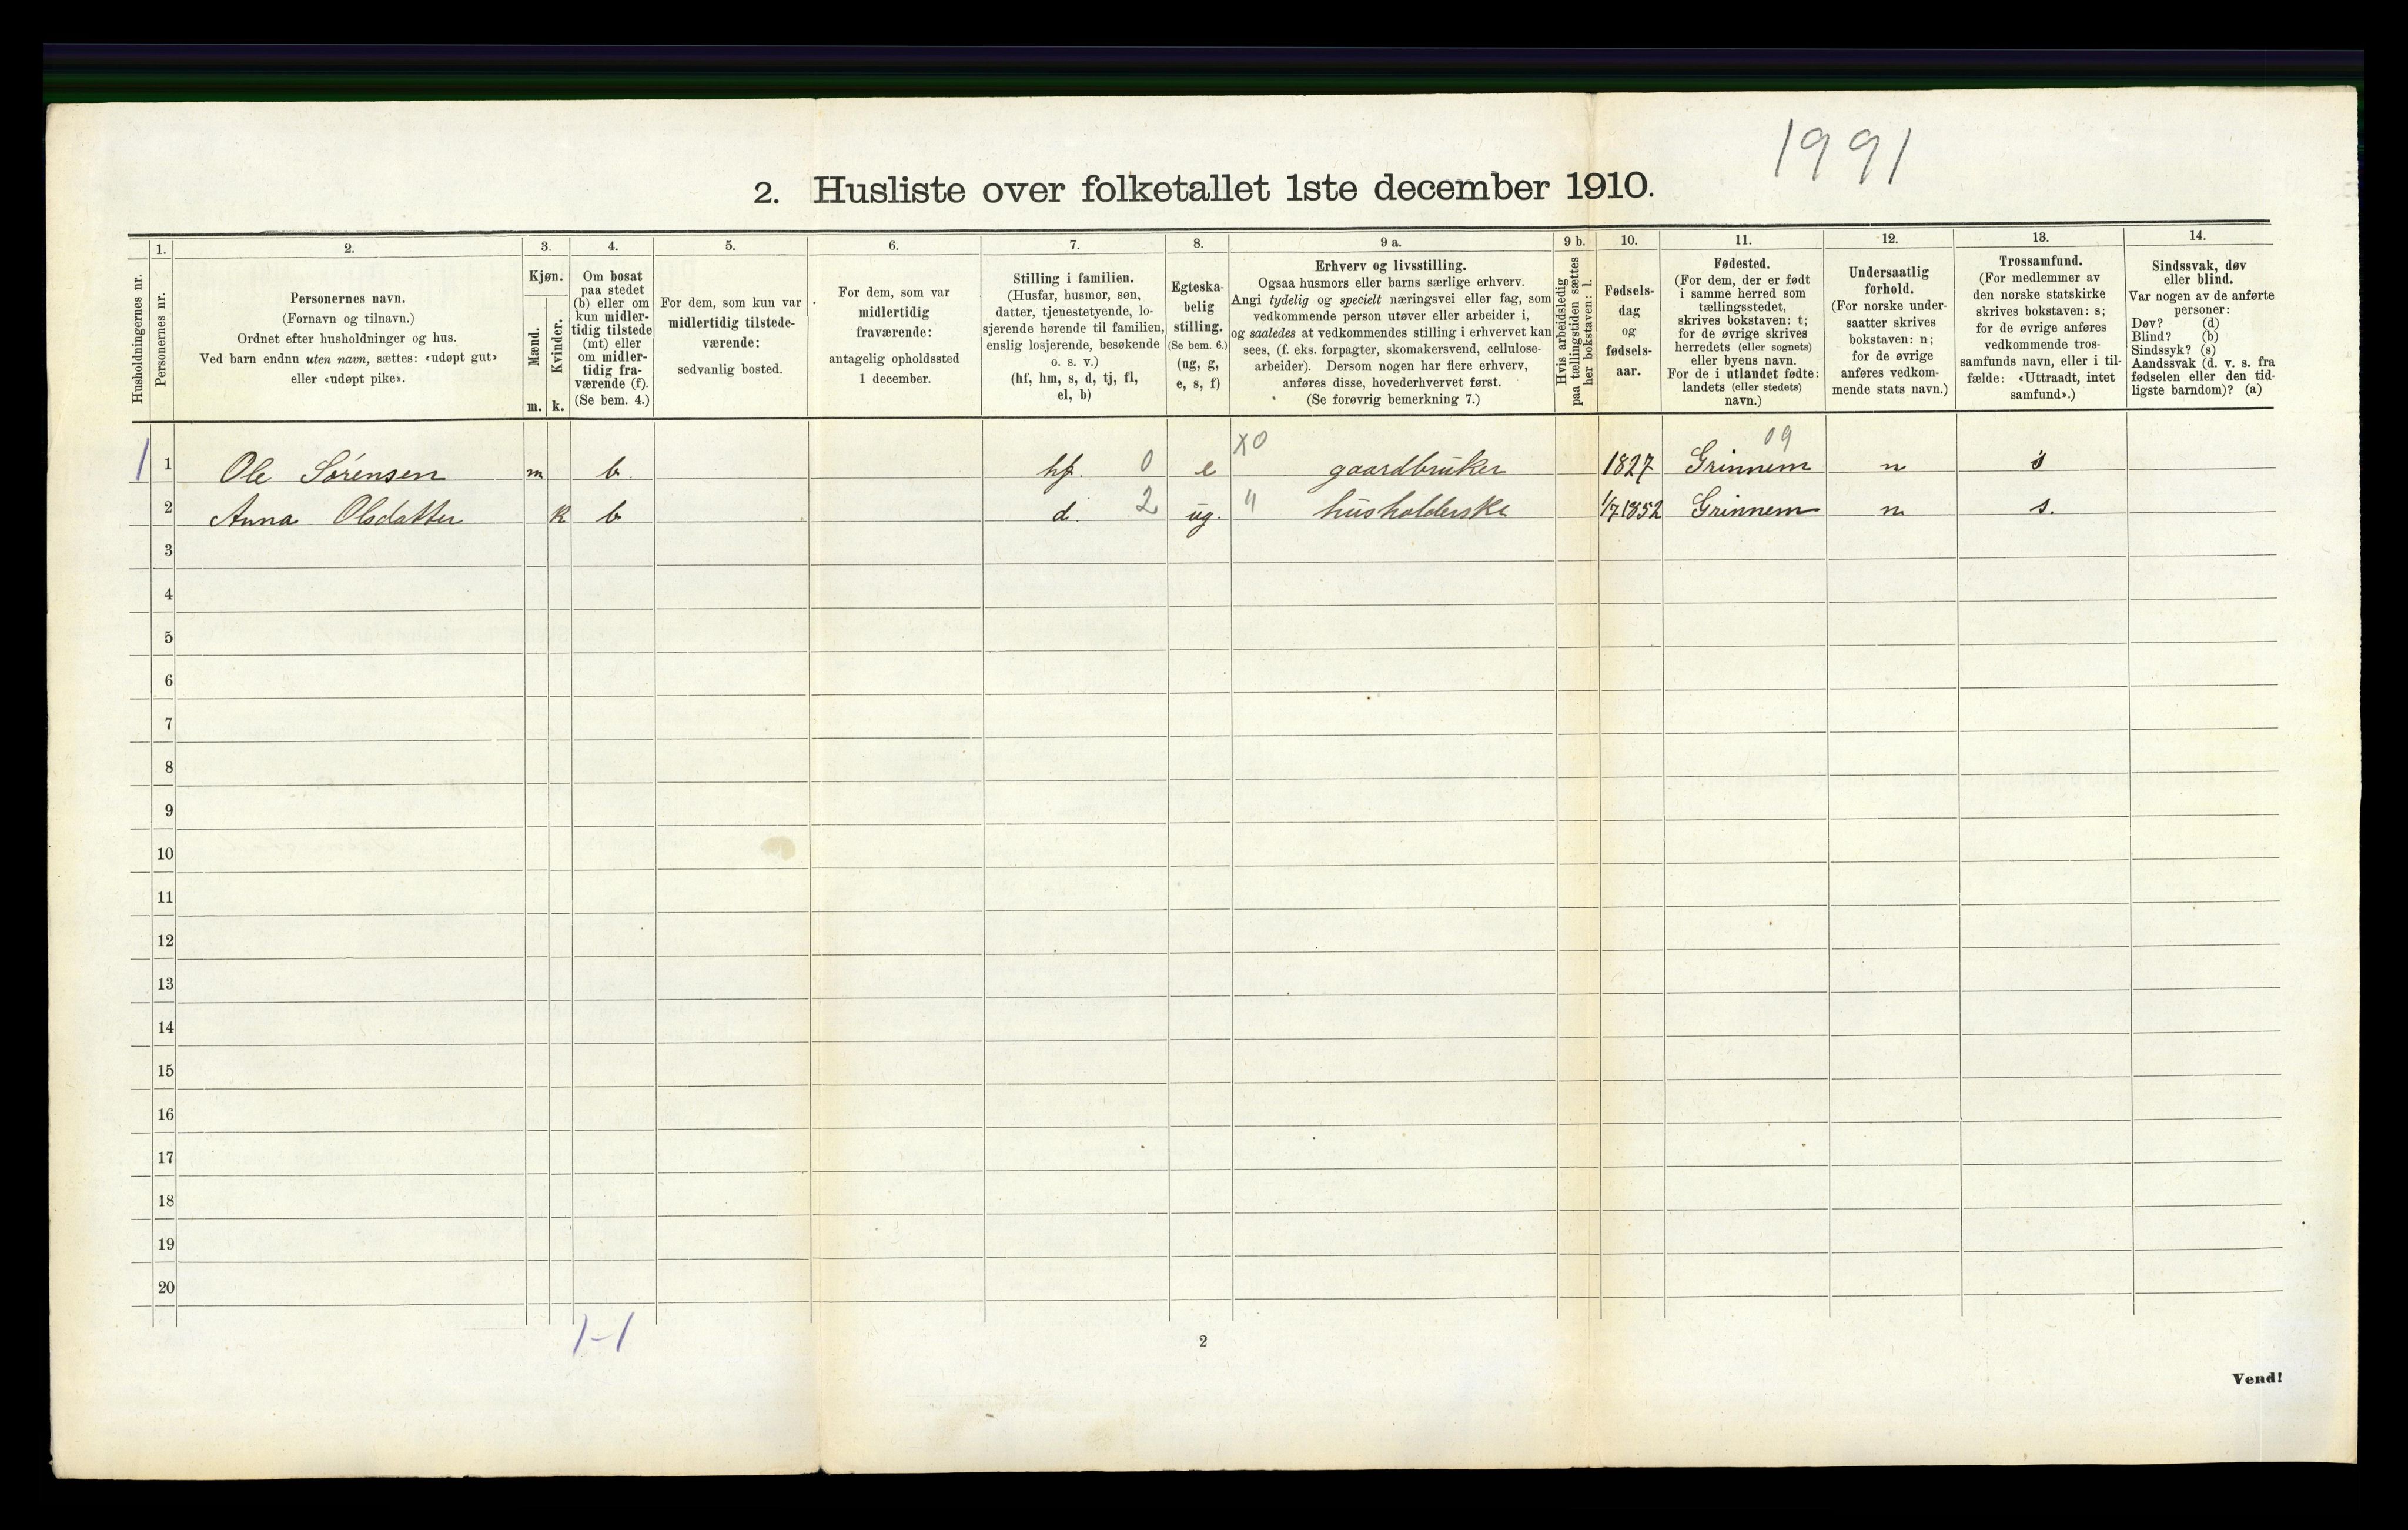 1991
2. Husliste over folketallet 1ste december 1910.
Husholdningernes nr.
1.
Personernes nr.
2.
Personernes navn.
(Fornavn og tilnavn.)
Ordnet efter husholdninger og hus.
Ved barn endnu uten navn, sættes: «udøpt gut»
eller «udøpt pike».
3.
Kjøn.
Mænd.
Kvinder.
m. k.
4.
Om bosat
paa stedet
(b) eller om
kun midler-
tidig tilstede
(mt) eller
om midler-
tidig fra-
værende (f).
(Se bem. 4.)
5.
For dem, som kun var
midlertidig tilstede-
værende:
sedvanlig bosted.
6.
For dem, som var
midlertidig
fraværende:
antagelig opholdssted
1 december.
7.
Stilling i familien.
(Husfar, husmor, søn,
datter, tjenestetyende, lo-
sjerende hørende til familien,
enslig losjerende, besøkende
o. s. v.)
(hf, hm, s, d, tj, fl,
el, b)
8.
Egteska-
belig
stilling.
(Se bem. 6.)
(ug, g,
e, s, f)
9 a.
Erhverv og livsstilling.
Ogsaa husmors eller barns særlige erhverv.
Angi tydelig og specielt næringsvei eller fag, som
vedkommende person utøver eller arbeider i,
og saaledes at vedkommendes stilling i erhvervet kan
sees, (f. eks. forpagter, skomakersvend, cellulose-
arbeider). Dersom nogen har flere erhverv,
anføres disse, hovederhvervet først.
(Se forøvrig bemerkning 7.)
9 b.
Hvis arbeidsledig
paa tællingstiden sættes
her bokstaven: l.
10.
Fødsels-
dag
og
fødsels-
aar.
11.
Fødested.
(For dem, der er født
i samme herred som
tællingsstedet,
skrives bokstaven: t;
for de øvrige skrives
herredets (eller sognets)
eller byens navn.
For de i utlandet fødte:
landets (eller stedets)
navn.)
12.
Undersaatlig
forhold.
(For norske under-
saatter skrives
bokstaven: n;
for de øvrige
anføres vedkom-
mende stats navn.)
13.
Trossamfund.
(For medlemmer av
den norske statskirke
skrives bokstaven: s;
for de øvrige anføres
vedkommende tros-
samfunds navn, eller i til-
fælde: «Uttraadt, intet
samfund».)
14.
Sindssvak, døv
eller blind.
Var nogen av de anførte
personer:
Døv? (d)
Blind? (b)
Sindssyk? (s)
Aandssvak (d. v. s. fra
fødselen eller den tid-
ligste barndom)? (a)
1 1 Ole Sørensen m b. hf. 0 e X0 gaardbruker 1827 Grinnem 09 n s
2 Anna Olsdatter k b d. 2 ug. " husholderske 1/7 1852 Grinnem n s.
3
4
5
6
7
8
9
10
11
12
13
14
15
16
17
18
19
20
1-1
2
Vend!